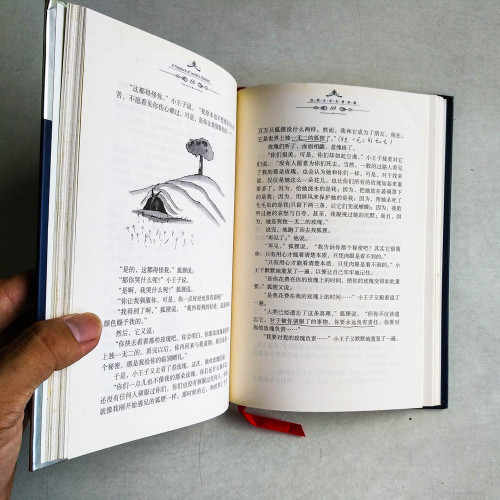 A Treasury of World's Classics
68
"这都得怪你，"小王子说，"我原本也不想
苦，不愿看见你伤心难过，可是，是你
"是的，这都得怪我。"狐狸说。
"那你哭什么呢？"小王子说。
"是啊，我哭什么呢？"狐狸说。
"你让我驯服你，可是，你一点好处也没有啊！"
"我得到了啊，"狐狸说，
颜色赐予我的。"
然后，它又说：
"你快去看看那些玫瑰吧，你会明白，你那朵玫瑰是世
上独一无二的。看完以后，你再回来与我道别，我会告诉你一
个秘密，那是我给你的临别赠礼。"
于是，小王子又去了看玫瑰。这次，他对玫瑰们说：
"你们一点儿也不像我的那朵玫瑰，你们什么也不是。
还没有任何人驯服过你们，你们也没有驯服过任何人。你们
就像我刚开始遇见的狐狸一样。那时候的它，和成千上
世界文学名著典藏
69
万万只狐狸没什么两样。然而，我和它成了朋友，现在，
它是世界上独一无二的狐狸了。"
玫瑰们听了，面面相觑，羞愧极了。
"你们很美，可是，你们却如此空虚。"小王子接着对它
们说，"没有人愿意为你们死去。当然，一般的过路人看见
了我的那朵玫瑰，也会认为它和你们一样。可是，对于我来
说，仅仅是她这么一朵花儿，也比你们的所有的玫瑰加起来重
要得多。因为，给她浇水的是我；因为，把她放在玻璃罩下
的是我；因为，用屏风来保护她的是我；因为，给她杀死了
毛毛虫的是我(只留下两三条，让它们变成蝴蝶)；因为，听
过她的哀怨与自夸，甚至，我凝视过她的沉默；而且，因
为，她是我独一无二的玫瑰。"
说完，他跑了回去找狐狸。
"再见了。"他说。
"再见，"狐狸说，"我告诉你那个秘密吧！其实它很简
单：只有用心才能看清楚本质，只凭肉眼是看不到的。"
"只有用心才能看清楚本质，只凭肉眼是看不到的。"小
王子默默地重复了一遍，以便让自己牢牢地记住。
"是你花费在你的玫瑰上的时间，使你的玫瑰变得如此重要。"
"是我花费在我的玫瑰上的时间……"小王子又跟着说了
一遍。
"人类已经遗忘了这条真理，"狐狸说，"但你不应该忘
记它。对于被你驯服了的事物，你要永远负责任。你要为你
的玫瑰负责……"
"我要对我的玫瑰负责……"小王子又默默地重复了一遍。